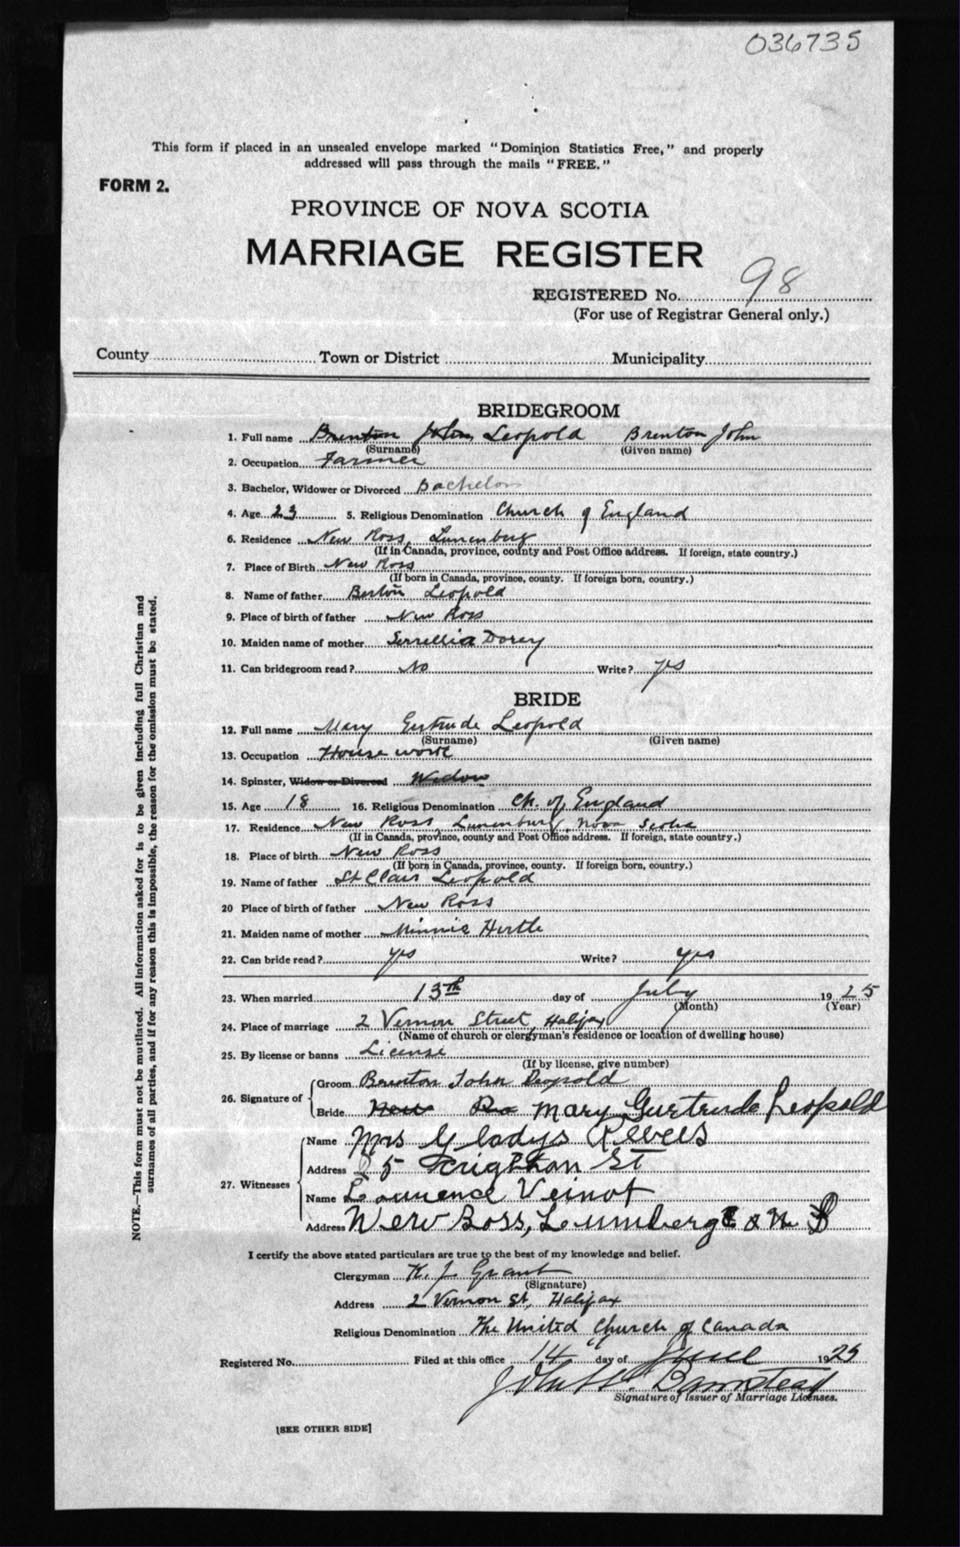 036735
This form if placed in an unsealed envelope marked "Dominion Statistics Free," and properly
addressed will pass through the mails "FREE."
FORM 2.
PROVINCE OF NOVA SCOTIA
MARRIAGE REGISTER
REGISTERED No. 98
(For use of Registrar General only.)
County Town or District Municipality
BRIDEGROOM
1. Full name Brenton John Leopold Brenton John
(Surname) (Given name)
2. Occupation Farmer
3. Bachelor, Widower or Divorced Bachelor
4. Age 23 5. Religious Denomination Church of England
6. Residence New Ross, Lunenburg
(If in Canada, province, county and Post Office address. If foreign, state country.)
7. Place of Birth New Ross
(If born in Canada, province, county. If foreign born, country.)
8. Name of father Leopold
9. Place of birth of father New Ross
10. Maiden name of mother Dorey
11. Can bridegroom read? No Write? yes
BRIDE
12. Full name Mary Gertrude Leopold
(Surname) (Given name)
13. Occupation House work
14. Spinster, Widow or Divorced Widow
15. Age 18 16. Religious Denomination Ch. of England
17. Residence New Ross, Lunenburg, Nova Scotia
(If in Canada, province, county and Post Office address. If foreign, state country.)
18. Place of birth New Ross
(If born in Canada, province, county. If foreign born, country.)
19. Name of father St Clair Leopold
20 Place of birth of father New Ross
21. Maiden name of mother Minnie Hirtle
22. Can bride read? yes Write? yes
23. When married 13th day of July 1925
(Month) (Year)
24. Place of marriage 2 Vernon Street, Halifax
(Name of church or clergyman's residence or location of dwelling house)
25. By license or banns License
(If by license, give number)
26. Signature of
Groom Brenton John Leopold
Bride Mary Gurtrude Leopold
27. Witnesses
Name Mrs Gladys
Address 5 St
Name Laurence Veinot
Address New Ross,
I certify the above stated particulars are true to the best of my knowledge and belief.
Clergyman Grant
(Signature)
Address 2 Vernon St, Halifax
Religious Denomination The United Church of Canada
Registered No. Filed at this office 14 day of June 1925
Barnstead
Signature of Issuer of Marriage Licenses.
[SEE OTHER SIDE]
NOTE.—This form must not be mutilated. All information asked for is to be given including full Christian and
surnames of all parties, and if for any reason this is impossible, the reason for the omission must be stated.